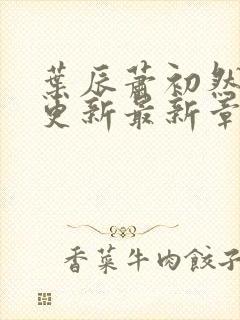 葉辰蕭初然
更新最新章
香菜牛肉餃子